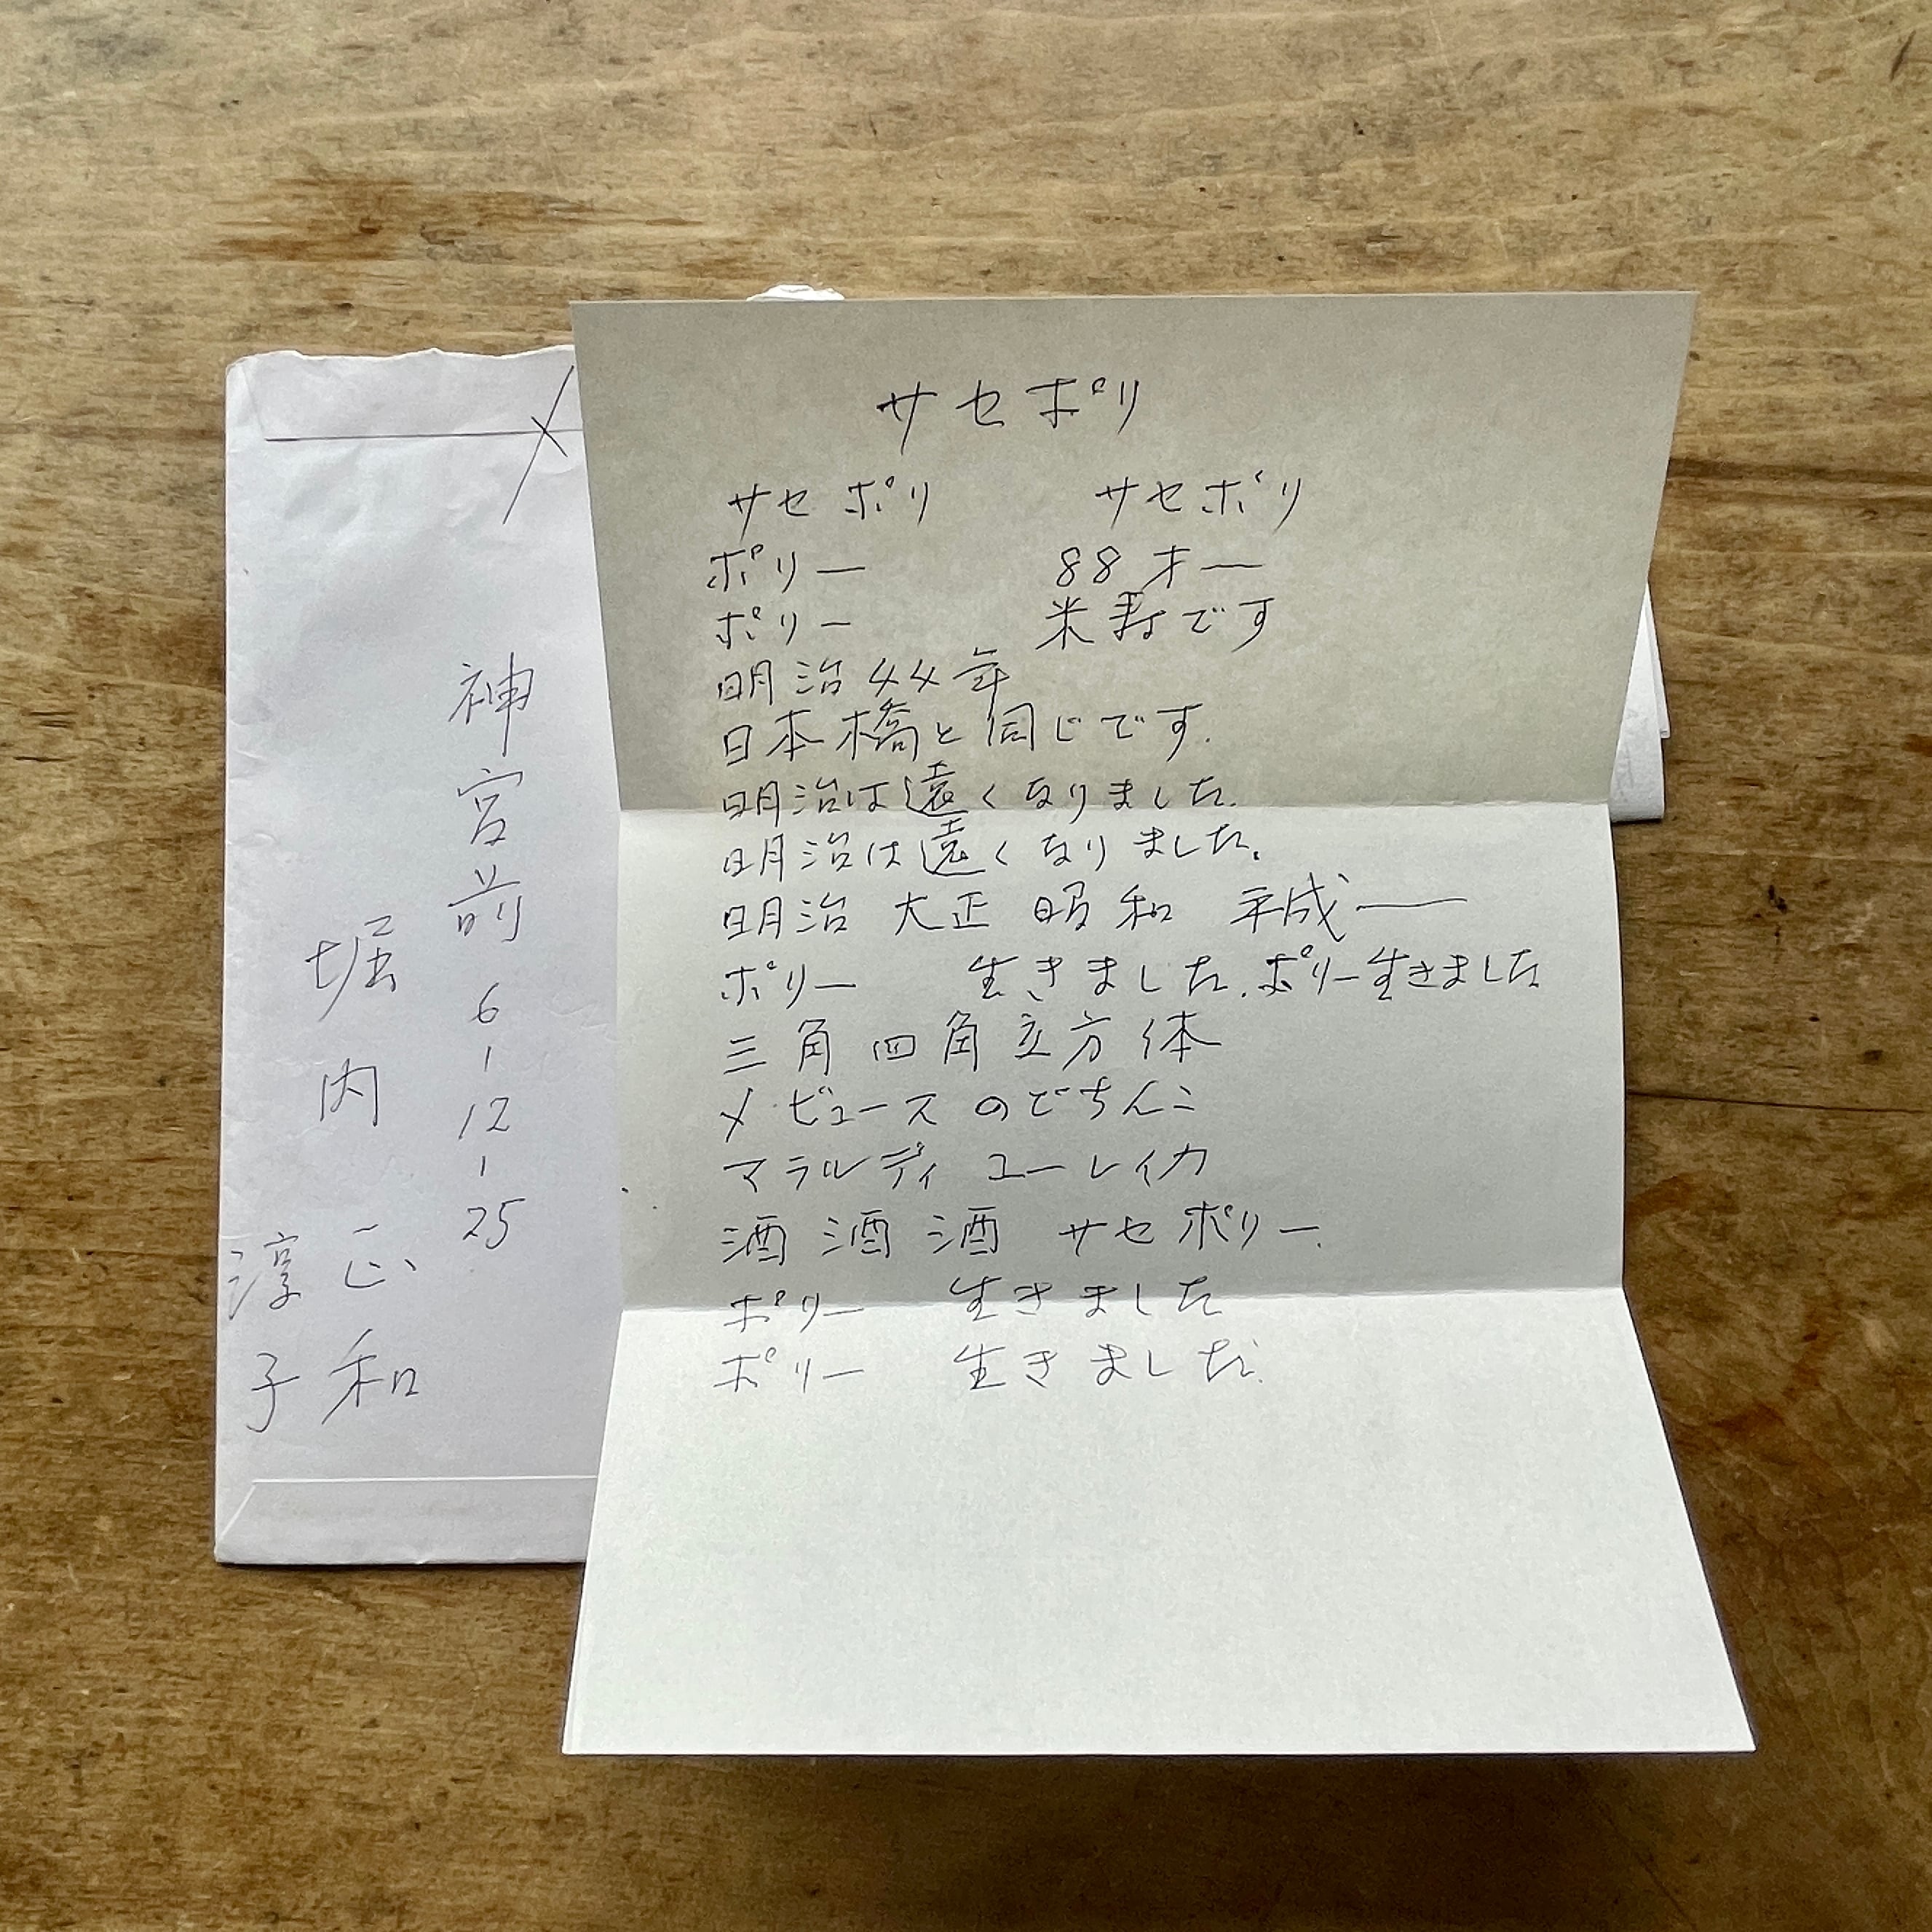 サセポリ
サセポリ サセポリ
ポリー 88才ー
ポリー 米寿です
明治44年
日本橋と同じです.
明治は遠くなりました.
明治は遠くなりました.
明治 大正 昭和 平成――
ポリー 生きました.ポリー生きました
三角四角立方体
メビュースのでちんこ
マラルディ ユーレイカ
酒 酒 酒 サセポリー.
ポリー 生きました
ポリー 生きました.
〆
神宮前 6-12-25
堀内 正和
淳子